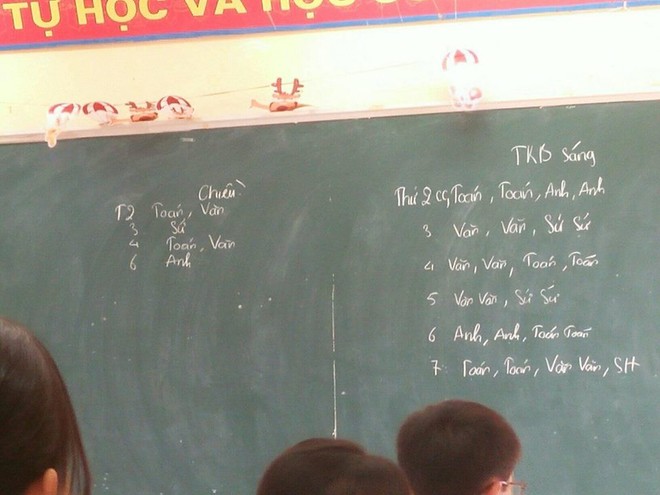 TỰ HỌC VÀ HỌC
Chiều:
T2 Toán, Văn
3 Sử
4 Toán, Văn
6 Anh
TKB Sáng
Thứ 2 CC, Toán, Toán, Anh, Anh
3 Văn, Văn, Sử Sử
4 Văn, Văn, Toán, Toán
5 Văn Văn, Sử Sử
6 Anh, Anh, Toán Toán
7 Toán, Toán, Văn Văn, SH